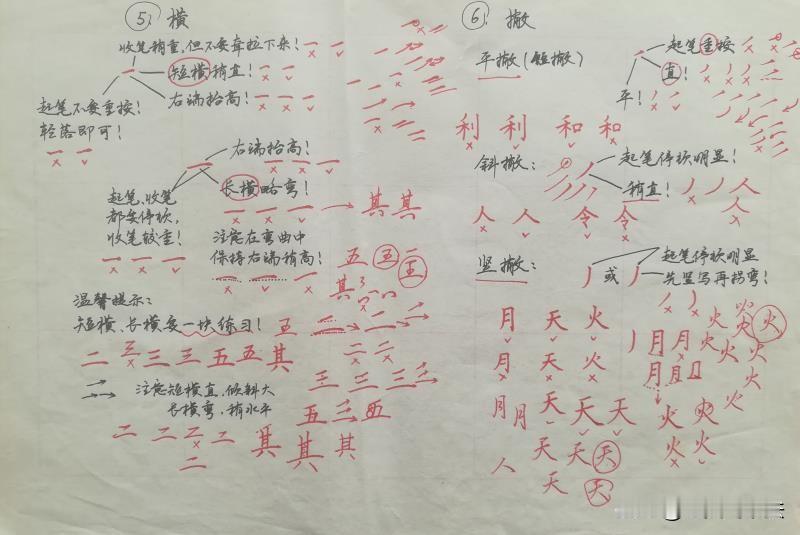 ⑤ 横
收笔稍重,但不要耷拉下来!
短横稍直!
右端抬高!
起笔不要重按!
轻落即可!
右端抬高!
长横略弯!
起笔、收笔
都要停顿,
收笔较重!
其 其
注意在弯曲中
保持右端稍高!
五 五 王
其
温馨提示:
短横、长横要一块练习! 五 二
二 三 三 三 五 五 其
二 二
三 三 三
注意短横直,倾斜大
长横弯,稍水平
五 三 西
二 二 二 二 其 其 其
二
⑥ 撇
平撇(短撇)
起笔重按
直!
平!
利 利 和 和
斜撇:
起笔停顿明显!
稍直!
人
人
人 人 令 令
竖撇:
或
起笔停顿明显
先竖写再拐弯!
月 天 火
月 天 火
月 月 天 天 天
人 天 天 天
天 天
火 火 火 火
月 月 火 火
月 月 火
火 火
火 火